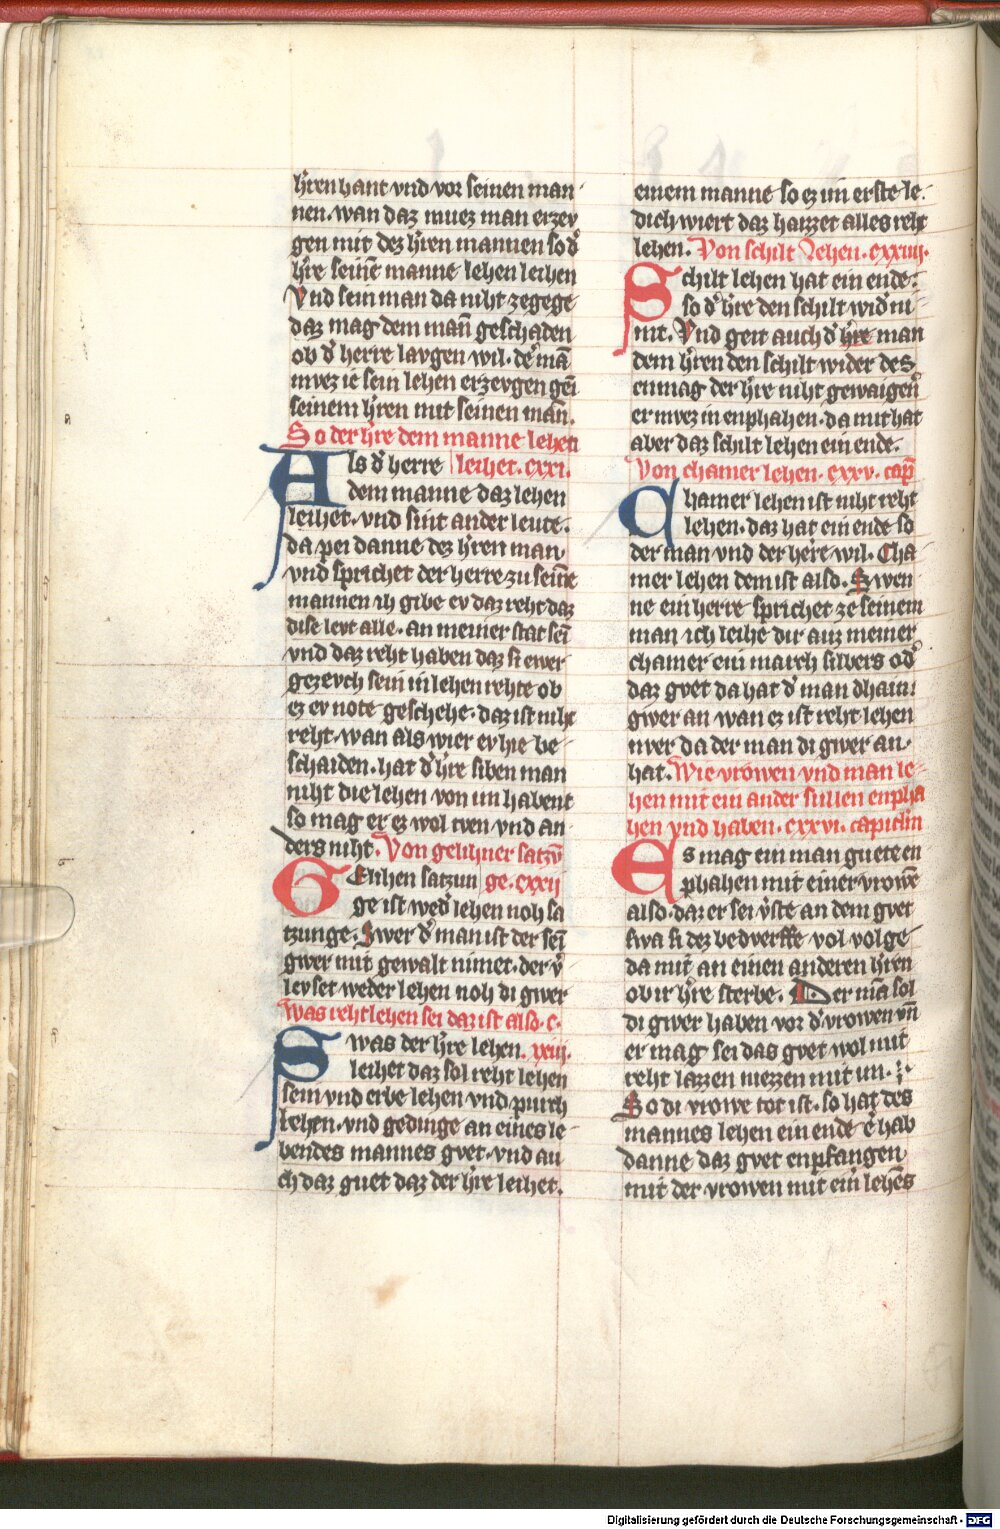 h'ren hant vnd vor seinen man
nen. wan daz muez man erzev
gen mit dez h'ren mannen so d'
h're seinē manne lehen leihen
Vnd sein man da niht zegege
daz mag dem mañ geschaden
ob d' herre lavgen wil. d'e mā
mvez ie sein lehen erzevgen gēi
seinem h'ren mit seinen mañ.
So der h're dem manne lehen
leihet. cxxi.
Als d' herre
dem manne daz lehen
leihet. vnd sint ander leute.
da pei danne dez h'ren man
vnd sprichet der herre zu seinē
mannen ih gibe ev daz reht daz
dise levt alle. an meiner stat sēi
vnd daz reht haben daz si ewer
gezevch sein in lehen rehte ob
ez ev note geschehe. daz ist niht
reht. wan als wier ev hie be
schaiden. hat d' h're siben man
niht die lehen von im habent
so mag er ez wol tven vnd an
ders niht. Von gelihner satzv̄
ge. cxxij
GElihen satzun
ge ist wed' lehen noh sa
tzunge. Swer d' man ist der sēi
gwer mit gewalt nimet. der v'
levset weder lehen noh di gwer
Was reht lehen sei daz ist also. c.
xxiij.
Swas der h're lehen
leihet daz sol reht lehen
sein vnd erbe lehen vnd purch
lehen. vnd gedinge an eines le
bendes mannes gvet. vnd au
ch daz guet daz der h're leihet.
einem manne so ez im erste le
dich wiert daz haizzet alles reht
lehen. Von schilt Lehen. cxxiiij.
Schilt lehen hat ein ende.
so d' h're den schilt wid' ni
mt. Vnd geit auch d' h're man
dem h'ren den schilt wider des
enmag der h're niht gewaigen'
er mvez in enphahen. da mit hat
aber daz schilt lehen ein ende.
Von chamer lehen. cxxv. cap̄
Chamer lehen ist niht reht
lehen. daz hat ein ende so
der man vnd der herre wil. Cha
mer lehen dem ist also. Swen
ne ein herre sprichet ze seinem
man ich leihe dir auz meiner
chamer ein march silbers od'
daz gvet da hat d' man dhain
gwer an wan ez ist reht lehen
nver da der man di gwer an
hat. Wie vrowen vnd man le
hen mit ein ander sullen enpha
hen vnd haben. cxxvi. capitlm
Es mag ein man guete en
phahen mit einer vrowē
also. daz er sei v'ste an dem gvet
swa si dez bedverffe vol volge
da mit an einen anderen h'ren
ob ir h're sterbe. Der mā sol
di gwer haben vor d' vrowen vn̄
er mag sei das gvet wol mit
reht lazzen niezzen mit im.
So di vrowe tot ist. so hat des
mannes lehen ein ende e' hab
danne daz gvet enpfangen
mit der vrowen mit ein' lehēs
Digitalisierung gefördert durch die Deutsche Forschungsgemeinschaft - DFG